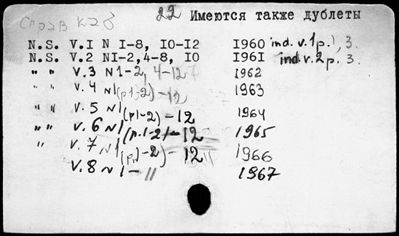 22 Имеются также дублеты
N.S. V.I N I-8, IO-I2 I960 ind. v.1 p.1, 3.
N.S. V.2 NI-2,4-8, IO I96I ind. v.2 p. 3.
" " V.3 N 1-2, 4-12 1962
" " V.4 N1(p.1-2)-12 1963
" " V.5 N1(p1-2)-12 1964
" " V.6 N1(p.1-2)-12 1965
" V.7 N1(p.1-2)-12 1966
V.8 N 1- 11 1967